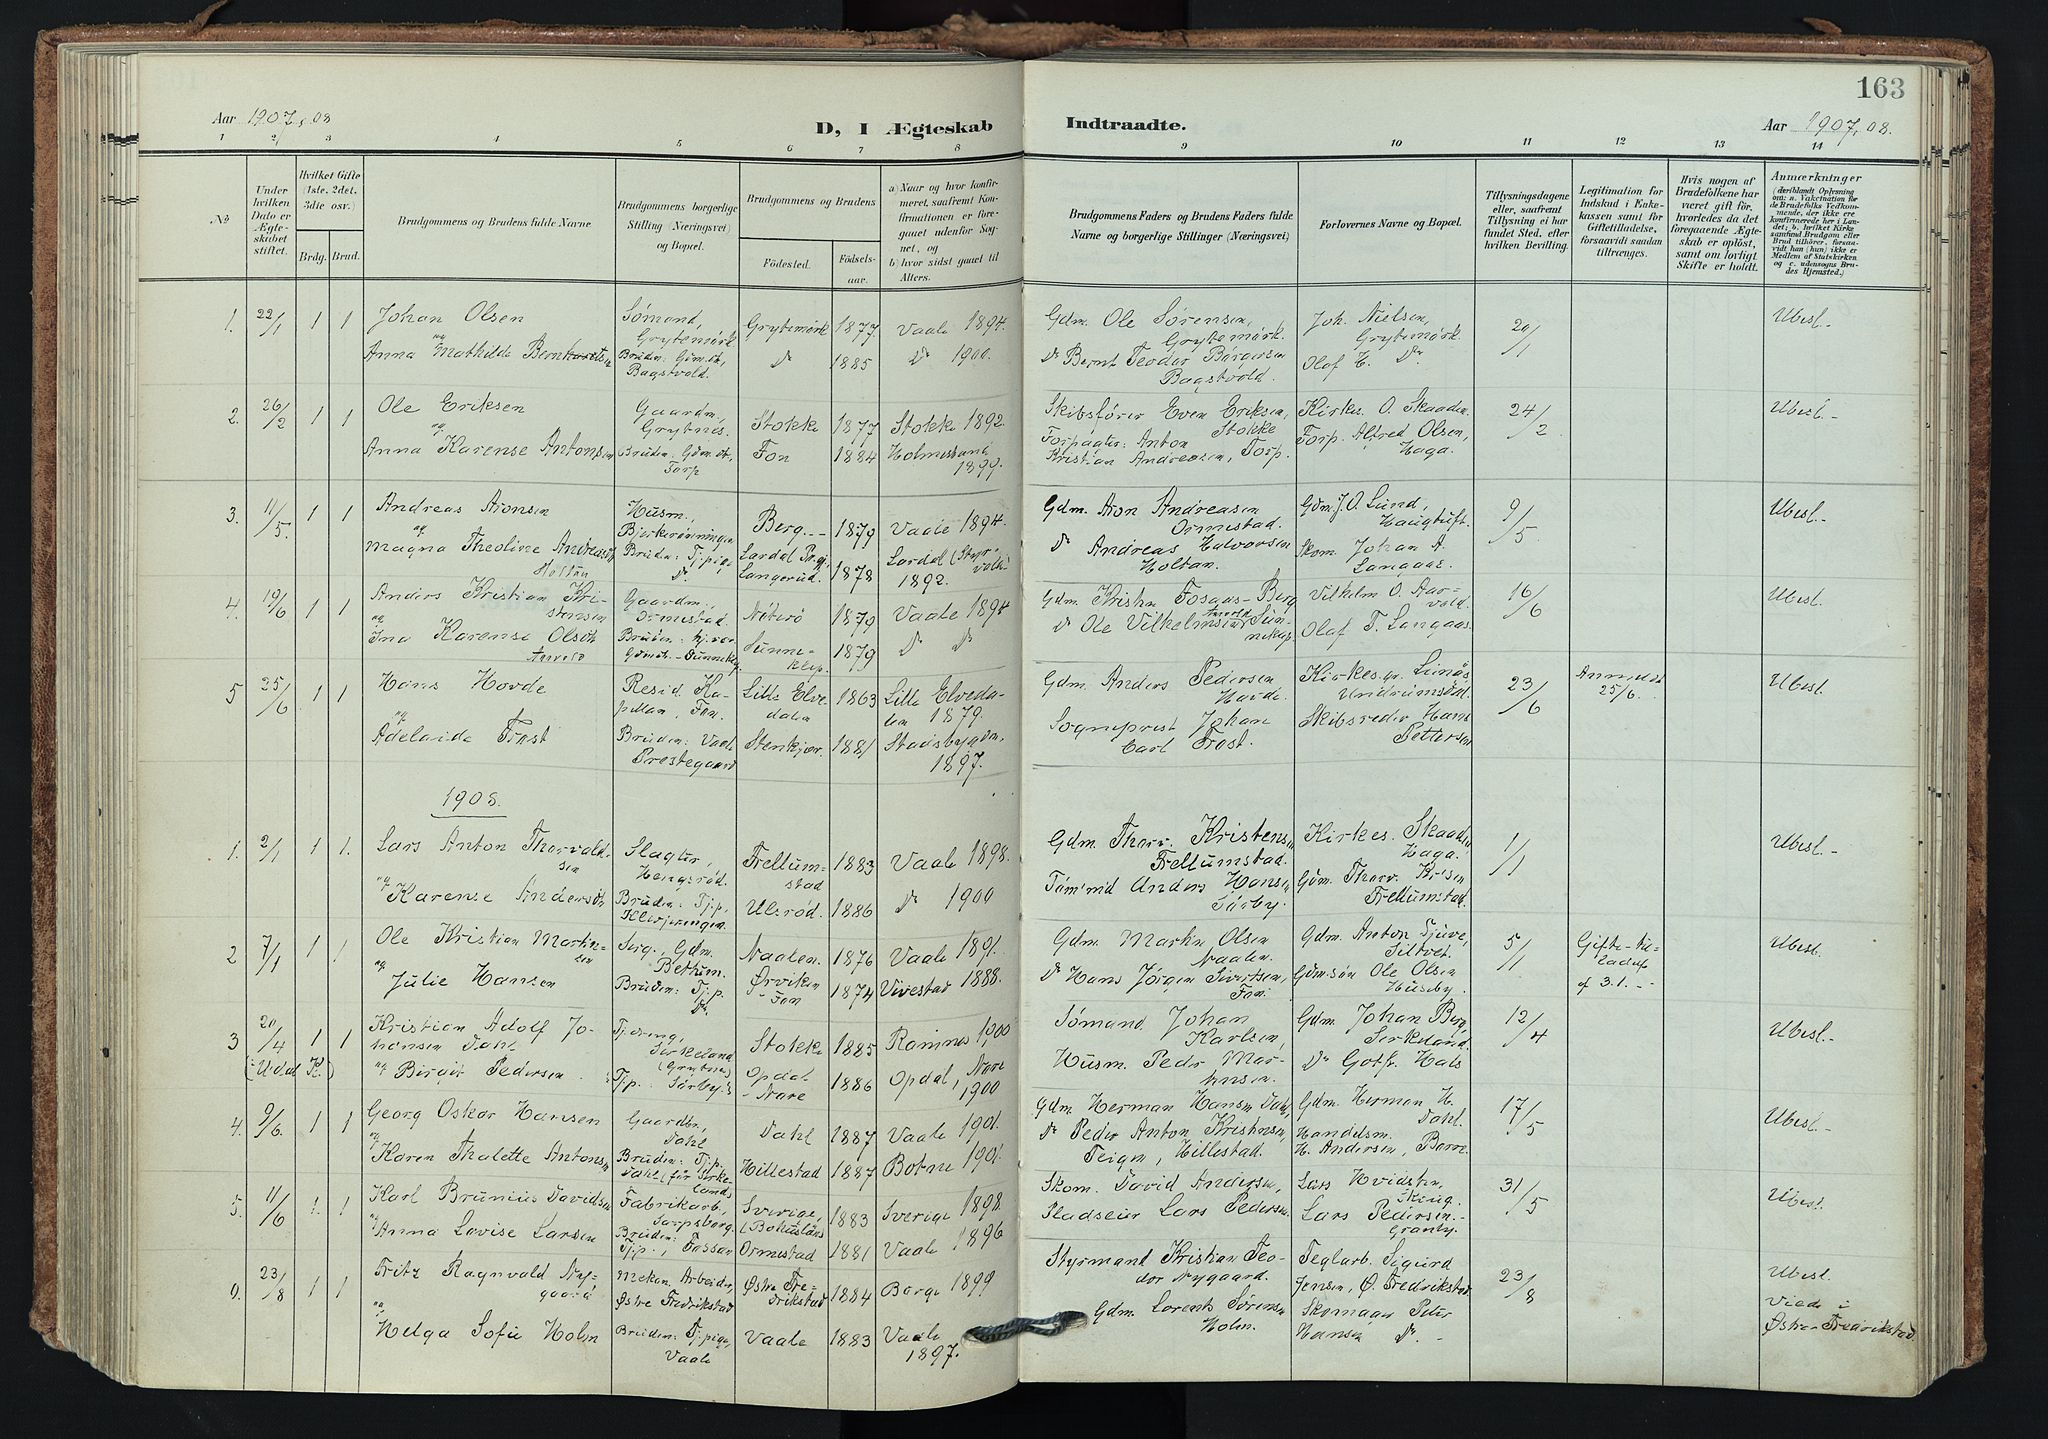 163
Aar 1907, 08
D, I Ægteskab
Indtraadte.
Aar 1907, 08.
1 2 3 4 5 6 7 8
9 10 11 12 13 14
No
Under hvilken Dato er Ægteskabet stiftet.
Hvilket Gifte (1ste, 2det, 3die osv.)
Brdg. Brud.
Brudgommens og Brudens fulde Navne
Brudgommens borgerlige Stilling (Næringsvei) og Bopæl.
Brudgommens og Brudens
Fødested. Fødselsaar.
a) Naar og hvor konfirmeret, saafremt Konfirmationen er foregaaet udenfor Sognet, og
b) hvor sidst gaaet til Alters.
Brudgommens Faders og Brudens Faders fulde Navne og borgerlige Stillinger (Næringsvei)
Forlovernes Navne og Bopæl.
Tillysningsdagene eller, saafremt Tillysning ei har fundet Sted, efter hvilken Bevilling.
Legitimation for Indskud i Enkekassen samt for Giftetilladelse, forsaavidt saadan tiltrænges.
Hvis nogen af Brudefolkene har været gift før, hvorledes da det foregaaende Ægteskab er opløst, samt om lovligt Skifte er holdt.
Anmærkninger
(deriblandt Oplysning om: a. Vakcination for de Brudefolks Vedkommende, der ikke ere konfirmerede her i Landet; b. hvilket Kirkesamfund Brudgom eller Brud tilhører, forsaavidt han (hun) ikke er Medlem af Statskirken og c. udensogns Brudes Hjemsted.)
1. 22/1 1 1 Johan Olsen Sømand, Grytemørk Grytemørk 1877. Vaale 1894. Gdm. Ole Sørensen, Grytemørk. Joh. Nielsen, Grytemørk. 20/1 Ubesl.-
og Anna Mathilde Bruden: Gdm.dt, Bagstvold. Do 1885 Do 1900. Do Bernt Teodor Børgersen Bagstvold. Olaf H. Do
2. 26/2 1 1 Ole Eriksen Gaardm. Grytnes. Stokke 1877 Stokke 1892. Skibsfører Even Eriksen, Stokke Kirkes. O. Skaaden. 24/2 Ubesl-
og Anna Karense Antonsen Bruden: Gdm.dt, Torp Fon 1884 Holmestrand 1899. Forpagter: Anton Kristian Andreasen, Torp. Forp. Alfred Olsen, Haga.
3. 11/5. 1 1 Andreas Aronsen Husm., Bjerkerønningen Berg.-- 1879 Vaale 1894. Gdm. Aron Andreasen Ormestad. Gdm. J. O. Lund, Haugtuft. 9/5 Ubesl.-
og Magna Theoline Andreasdt Holtan Bruden: Tjpige Do. Lardal Pr.gj. Langerud. 1878 Lardal (Styrvold) 1892. Do Andreas Halvorsen Holtan. Skom. Johan A. Langaas.
4. 19/6 1 1 Anders Kristian Kristensen Gaardm., Ormestad. Nøterø 1879 Vaale 1894 Gdm. Kristen Fosaas-Berg Vilhelm O. Aarvold. 16/6 Ubesl.
og Ina Karense Olsdt Aarvold Sunneklep. 1879 Do Do Do Ole Vilhelmsen Aarvold, Sunneklep Olaf T. Langaas.
5 25/6 1 1 Hans Hovde Resid. Kapellan, Fon. Lille Elvedalen 1863 Lille Elvedalen 1879. Gdm. Anders Pedersen Hovde. 23/6 25/6. Ubesl.
og Adelaide Frost Bruden: Vaale Prestegaard Stenkjær 1881 Stadsbygdn, 1897. Sogneprest Johan Carl Frost. Skibsreder Hans Pettersen
1908.
1. 2/1 1 1. Lars Anton Thorvaldsen Slagter, Hengsrød. Frellumstad 1883 Vaale 1898. Gdm. Thorv. Kristensen Frellumstad. Kirkes. Skaaden Haga. 1/1 Ubesl.-
og Karense Andersdt Bruden: Tj.p. Ulsrød. 1886 Do 1900 Tøm'md Anders Hansen Sørby. Gdm. Thorv. Krisen Frellumstad.
2 7/1 1 1 Ole Kristian Martinsen Serg., Gdm. Bettum. Naalen. 1876 Vaale 1891. Gdm. Martin Olsen Naalen. Gdm. Anton Tjuve, Siltvet. 5/1 Gifte-tilladelse af 3.1.-- Ubesl.
og Julie Hansen Bruden: Tj.p. Do. Ørviken Fon 1874 Vivestad 1888. Do Hans Jørgen Sivertsen, Fon. Gdm.søn Ole Olsen Huseby.
3 20/4 1 1 Kristian Adolf Johansen Dahl Tjdreng, Sirkeland (Grytnes) Stokke 1885 Ramnes 1900 Sømand Johan Karlsen, Gdm. Johan Berg, Sirkeland. 12/4 Ubesl.-
og Birgit Pedersen Tj.p. Sørby. Opdal Nore 1886 Opdal, Nore 1900 Husm. Peder Martinsen. Do Gotfr. Hals
4. 9/6. 1 1 Georg Oskar Hansen Gaardbr., Dahl Dahl 1887 Vaale 1901. Gdm. Herman Hansen Dahl Gdm. Herman H. Dahl. 17/5 Ubesl.-
og Karen Thalette Antonsen Bruden: Tj.p. Dahl (før Sirkeland) Hillestad 1887 Botne 1901. Do Peder Anton Kristensen, Teigen, Hillestad. Handelsm. H. Andersen, Borre.
5. 11/6 1. 1 Karl Brunius Davidsen Fabrikarb., Sarpsborg. Sverige, (Bohuslän) 1883 Sverige 1898. Skom. David Andersen, Lars Hvidsten, 31/5 Ubesl.
og Anna Lovise Larsen Bruden: Tj.p., Fossan Ormestad 1881 Vaale 1896 Lars Pedersen. Lars Pedersen.- Granby.
23/8 1 1 Fritz Ragnvald Nygaard Mekan. Arbeider, Østre Fredrikstad Østre Fredrikstad 1884 Borge 1899 Styrmand Kristian Teodor Nygaard. Teglarb. Sigurd Jensen, Ø. Fredrikstad 23/8 Ubesl. Viede i Østre Fredrikstad
og Helga Sofie Holm Bruden: Tj.pige, Vaale Vaale 1883 Vaale 1897. Gdm. Lorents Sørensen Holm. Skomager Peter Hansen Do.-